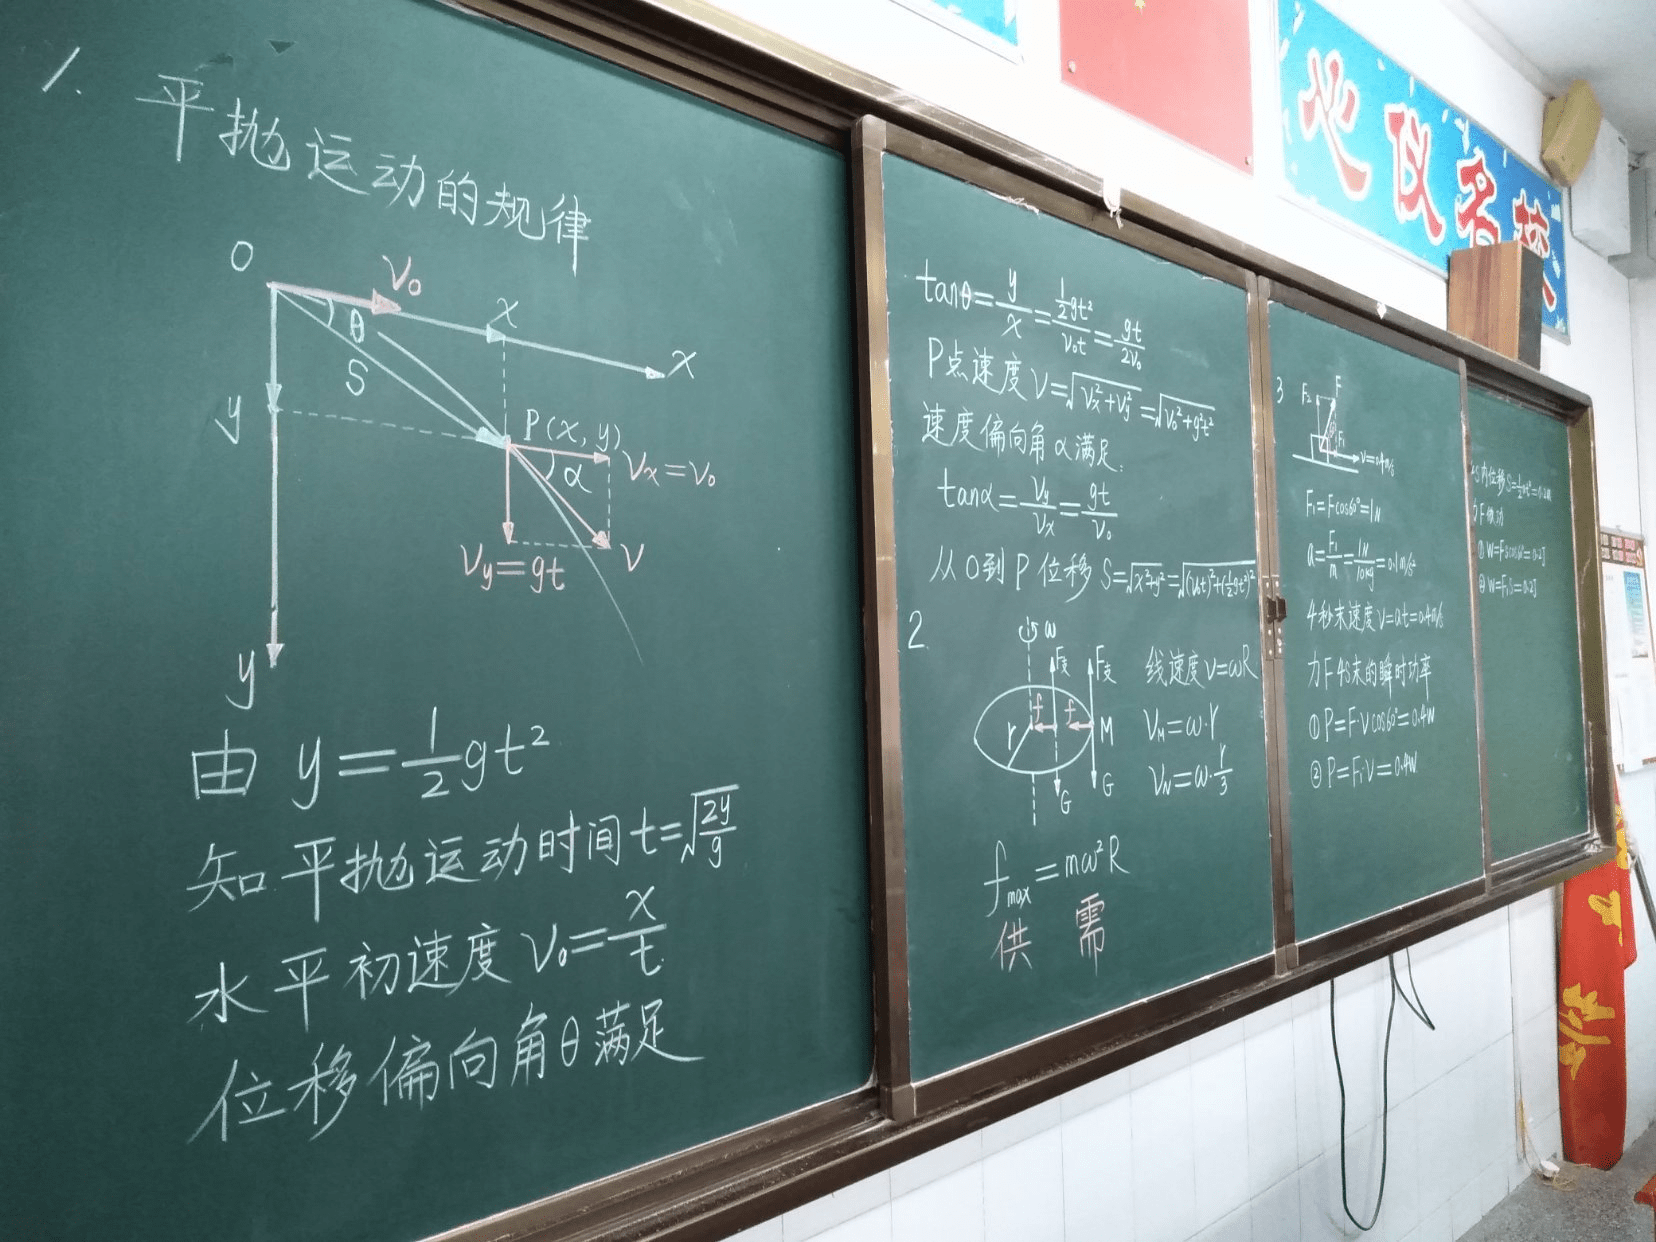 1. 平抛运动的规律
O
v₀
θ
x
x
S
y
P(x, y)
α
vₓ=v₀
v_y=gt
v
y
由 y=½gt²
知平抛运动时间t=√(2y/g)
水平初速度v₀=x/t
位移偏向角θ满足
tanθ=y/x=½gt²/v₀t=gt/2v₀
P点速度v=√(vₓ²+v_y²)=√(v₀²+g²t²)
速度偏向角α满足:
tanα=v_y/vₓ=gt/v₀
从O到P位移S=√(x²+y²)=√((v₀t)²+(½gt²)²)
2.
ω
F支
F支
f
f
r
M
G
G
线速度v=ωR
v_M=ω·r
v_N=ω·r/3
f_max=mω²R
供 需
3
F₂
F
F₁
v=0.4m/s
F₁=Fcos60°=1N
a=F₁/m=1N/10kg=0.1m/s²
4秒末速度v=at=0.4m/s
力F4s末的瞬时功率
①P=F·vcos60°=0.4W
②P=F₁·v=0.4W
内位移S=½at²=0.2m
力F做功
①W=FScos60°=0.2J
②W=F₁S=0.2J
心仪名校